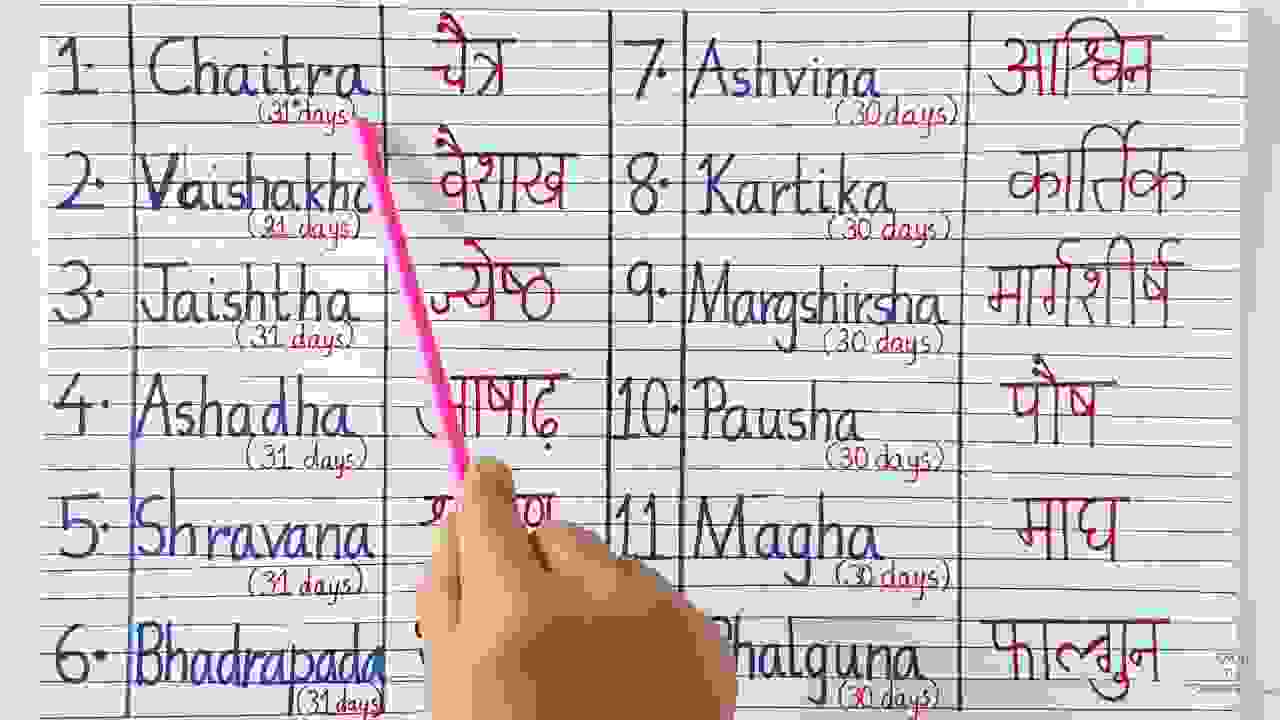 1. Chaitra चैत्र 7. Ashvina आश्विन
(31 days) (30 days)
2. Vaishakha वैशाख 8. Kartika कार्तिक
(31 days) (30 days)
3. Jaishtha ज्येष्ठ 9. Margshirsha मार्गशीर्ष
(31 days) (30 days)
4. Ashadha 10. Pausha पौष
(31 days) (30 days)
5. Shravana 11. Magha माघ
(31 days) (30 days)
6. Bhadrapada Phalguna फाल्गुन
(31 days) (30 days)